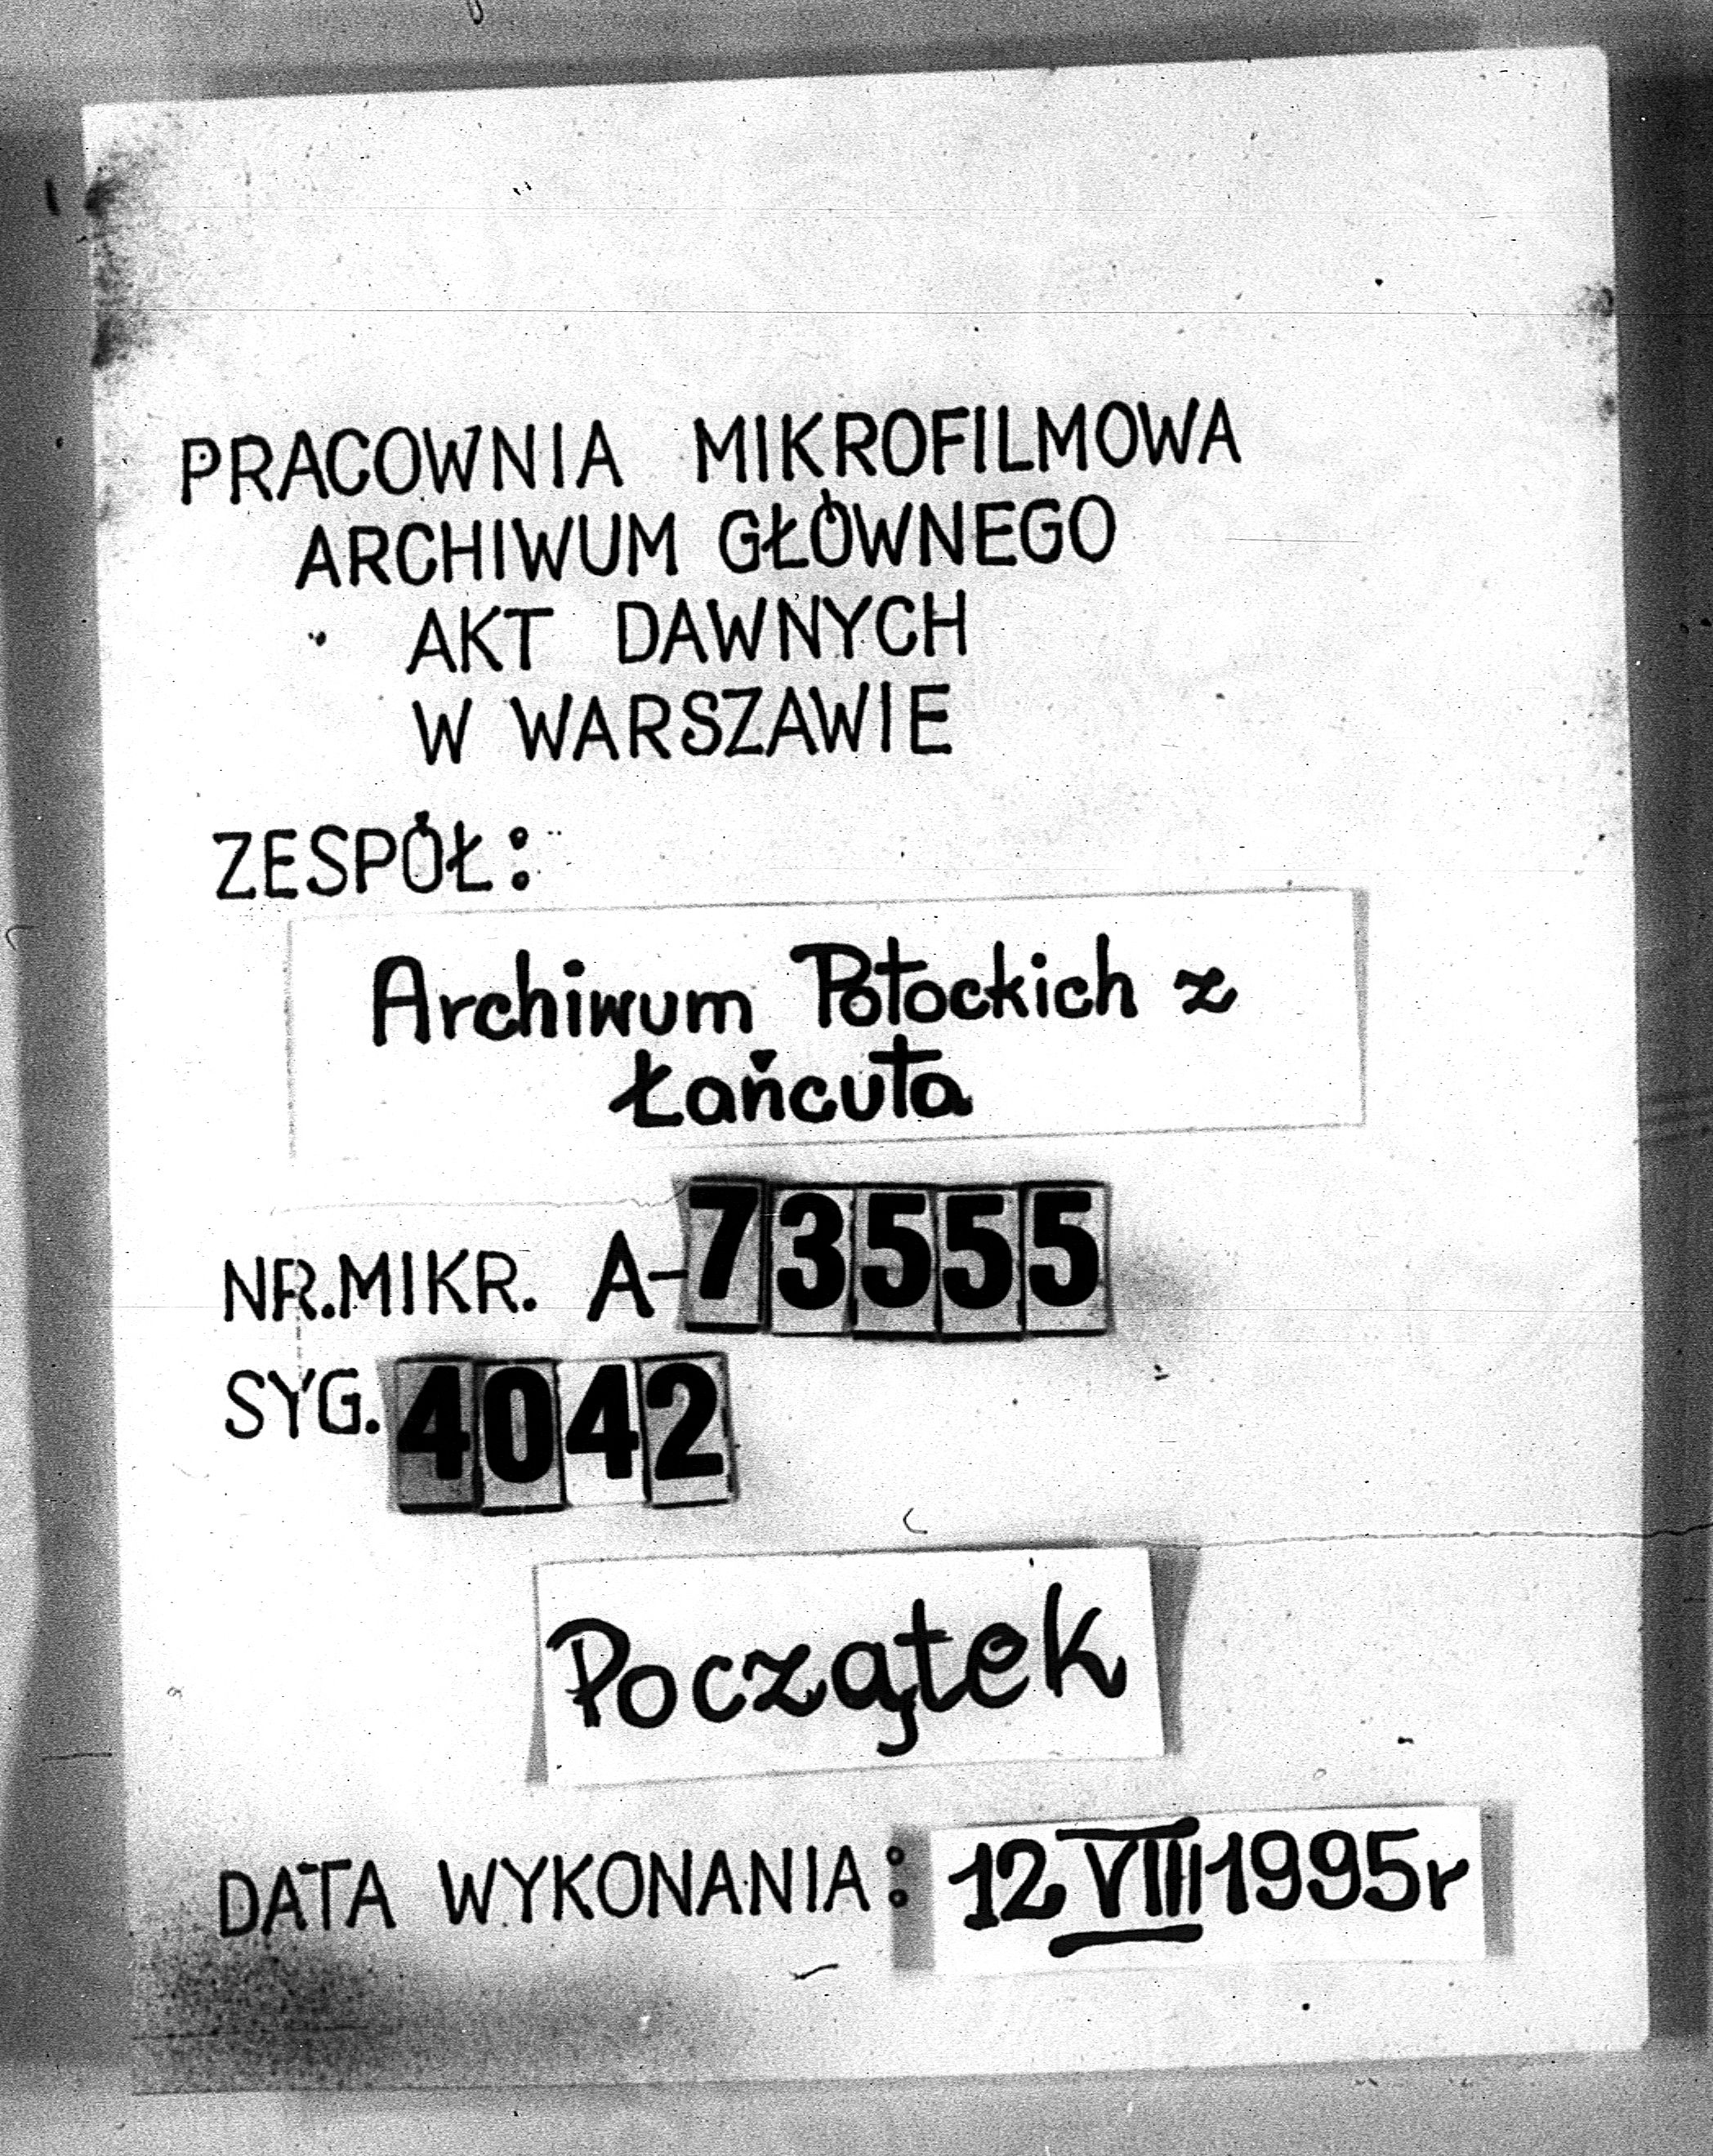 PRACOWNIA MIKROFILMOWA
ARCHIWUM GŁÓWNEGO
AKT DAWNYCH
W WARSZAWIE
ZESPÓŁ:
Archiwum Potockich z
Łańcuta
NR.MIKR. A-73555
SYG. 4042
Początek
DATA WYKONANIA: 12 VIII 1995r